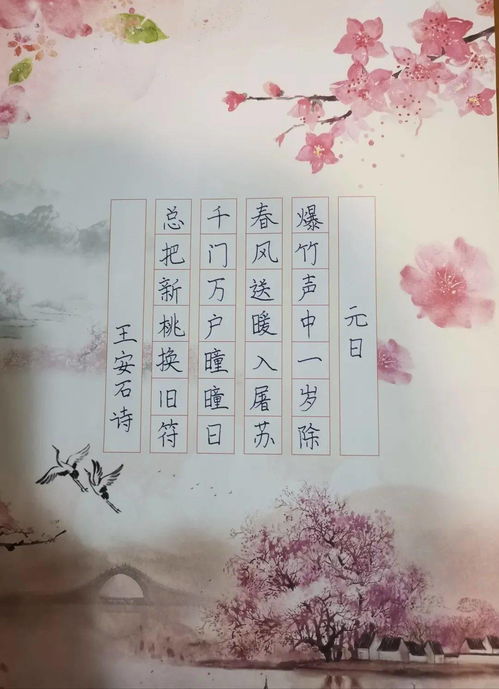 元日
爆竹声中一岁除
春风送暖入屠苏
千门万户瞳瞳日
总把新桃换旧符
王安石诗